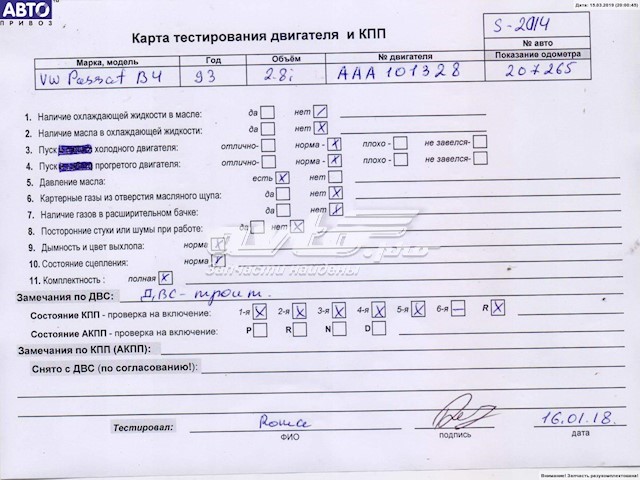 АВТО
ПРИВОЗ
Дата: 15.03.2019 (20:00:45)
Карта тестирования двигателя и КПП
S-2014
№ авто
Марка, модель Год Объём № двигателя Показание одометра
VW Passat B4 93 2.8i AAA 101328 207265
1. Наличие охлаждающей жидкости в масле: да нет
2. Наличие масла в охлаждающей жидкости: да нет X
3. Пуск холодного двигателя: отлично- норма - X плохо - не завелся-
4. Пуск прогретого двигателя: отлично- норма - X плохо - не завелся-
5. Давление масла: есть X нет
6. Картерные газы из отверстия масляного щупа: да нет X
7. Наличие газов в расширительном бачке: да нет X
8. Посторонние стуки или шумы при работе: да нет X
9. Дымность и цвет выхлопа: норма X
10. Состояние сцепления: норма X
11. Комплектность : полная X
запчасти найдены
Замечания по ДВС: ДВС-троит.
Состояние КПП - проверка на включение: 1-я X 2-я X 3-я X 4-я X 5-я X 6-я — R X
Состояние АКПП - проверка на включение: P R N D
Замечания по КПП (АКПП):
Снято с ДВС (по согласованию!):
Тестировал: Рома 16.01.18.
ФИО подпись дата
Внимание! Запчасть разукомплектована!